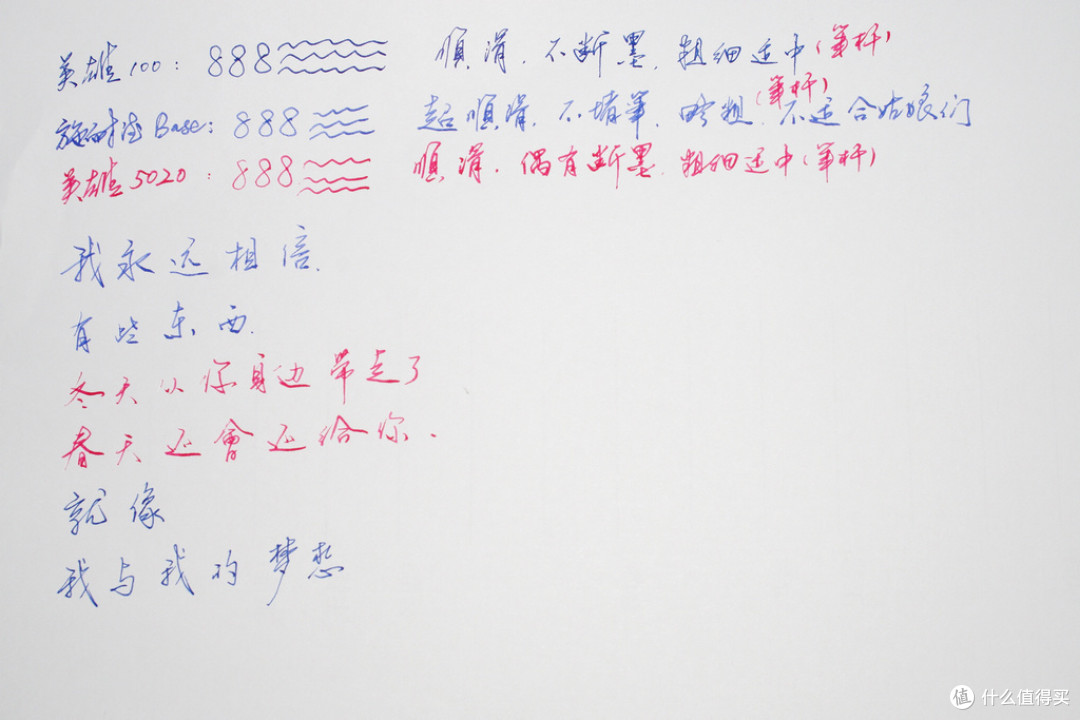 英雄100：888 順滑．不断墨．粗细适中(笔杆)
施耐德Base：888 超順滑．不堵笔．略粗(笔杆)．不适合姑娘们
英雄5020：888 順滑．偶有断墨．粗细适中(笔杆)
我永远相信．
有些东西．
冬天从你身边带走了
春天还會还给你．
就像
我与我的梦想
值 什么值得买